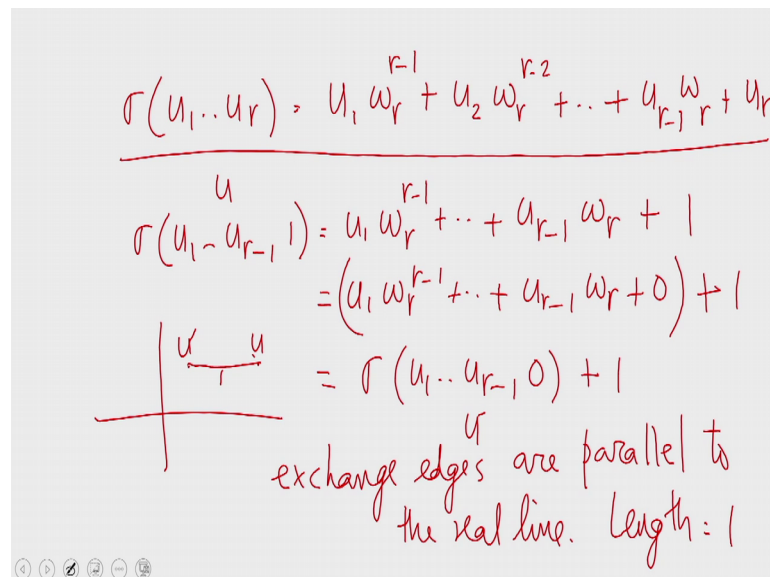 σ(u₁..uᵣ) = u₁ωᵣʳ⁻¹ + u₂ωᵣʳ⁻² + .. + uᵣ₋₁ωᵣ + uᵣ
u
σ(u₁..uᵣ₋₁ 1) = u₁ωᵣʳ⁻¹ + .. + uᵣ₋₁ωᵣ + 1
= (u₁ωᵣʳ⁻¹ + .. + uᵣ₋₁ωᵣ + 0) + 1
= σ(u₁..uᵣ₋₁, 0) + 1
u
1
exchange edges are parallel to
the real line. Length = 1